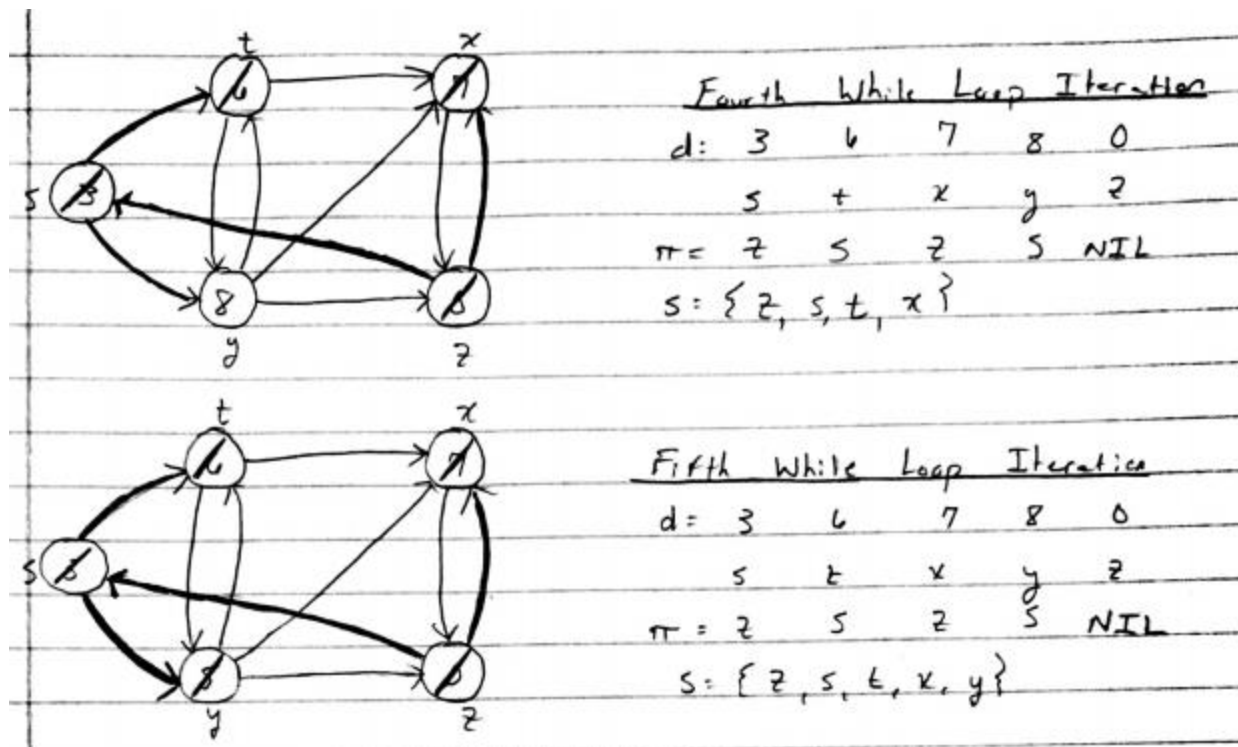 t x
6 7
s 3
8 0
y z
Fourth While Loop Iteration
d: 3 6 7 8 0
s t x y z
π = z s z s NIL
s = { z, s, t, x }
t x
6 7
s 3
8 0
y z
Fifth While Loop Iteration
d = 3 6 7 8 0
s t x y z
π = z s z s NIL
s = { z, s, t, x, y }